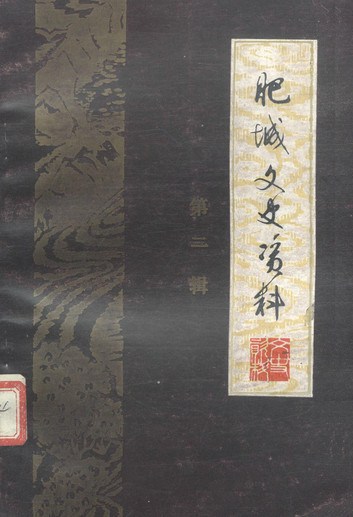 肥城文史资料
第三辑